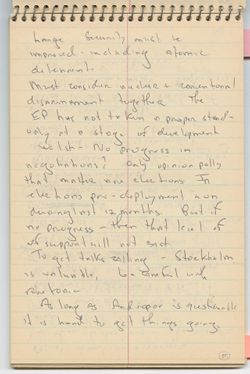 Europe. Security must be
improved - including atomic
deterrent.
Must consider nuclear & conventional
disarmament together. The
EP has not taken a proper stand -
only at a stage of development
- No progress in
negotiations? Only opinion polls
that matter are elections. In
elections pre-deployment won
during last 12 months. But if
no progress - then that level of
of support will not
To get talks rolling - Stockholm
is valuable, be careful with
rhetoric
As long as Andropov is questionable
it is hard to get things going.